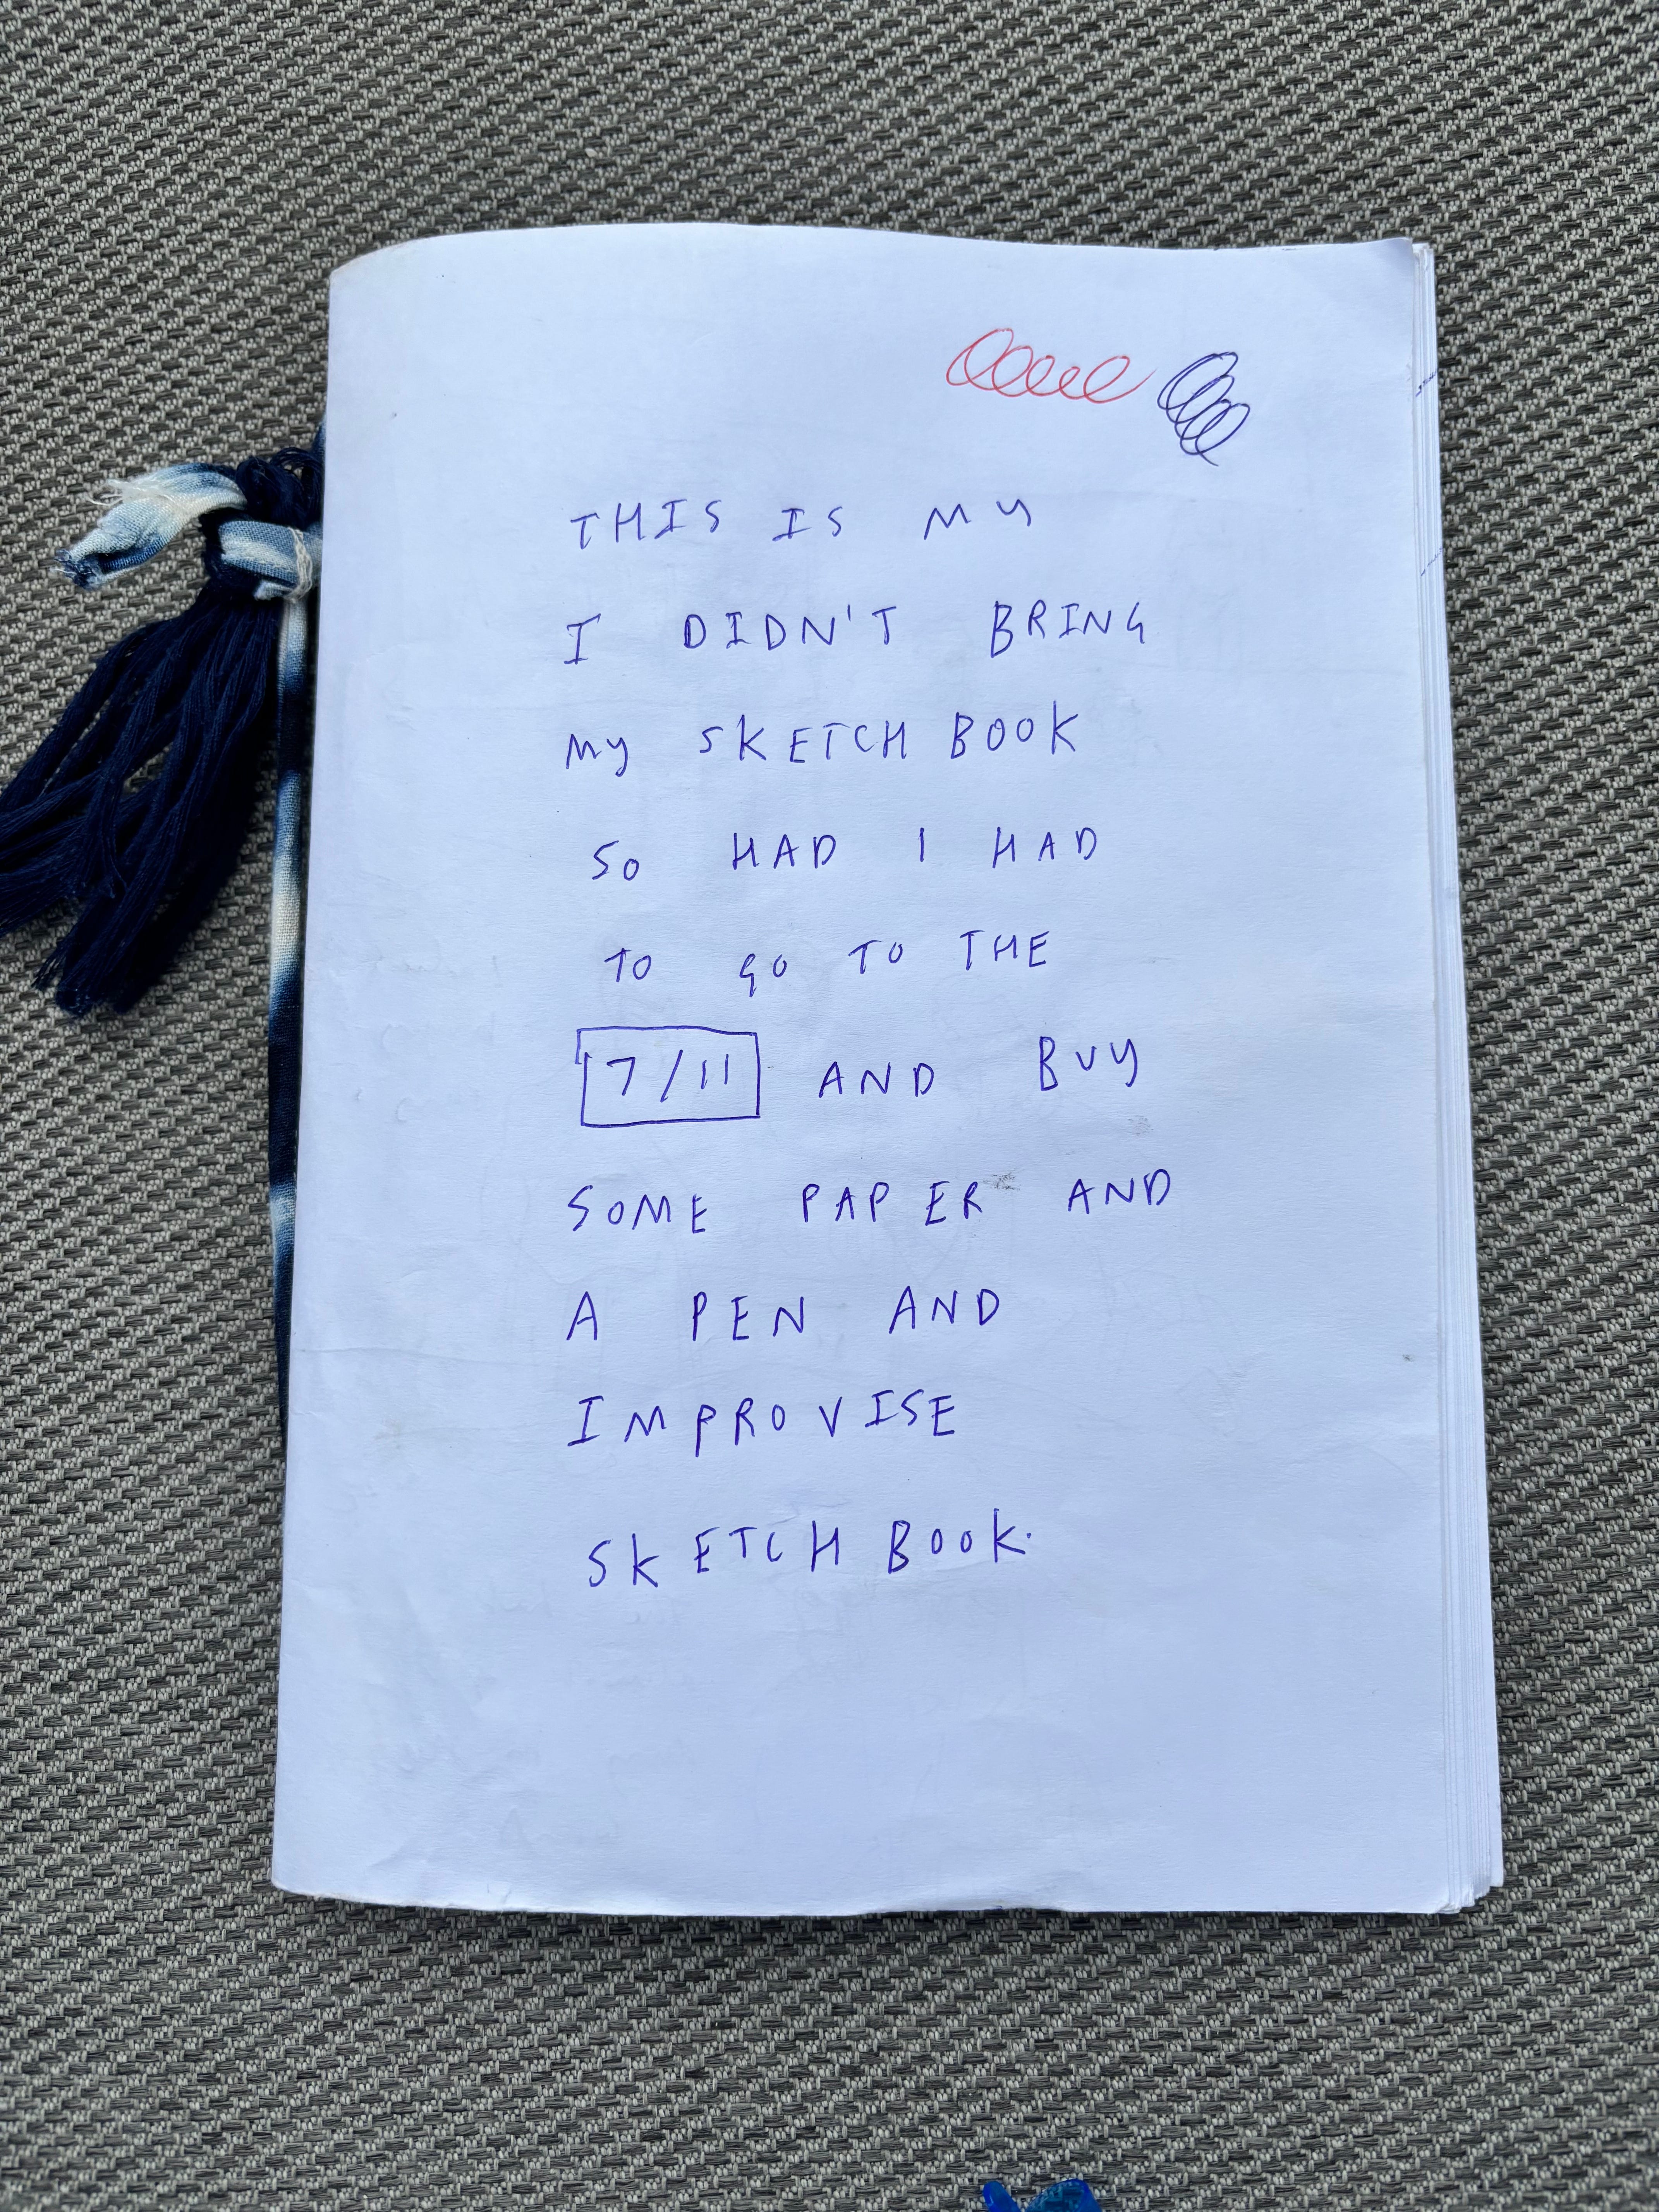 THIS IS MY
I DIDN'T BRING
MY SKETCH BOOK
SO HAD I HAD
TO GO TO THE
7/11 AND BUY
SOME PAPER AND
A PEN AND
IMPROVISE
SKETCH BOOK.